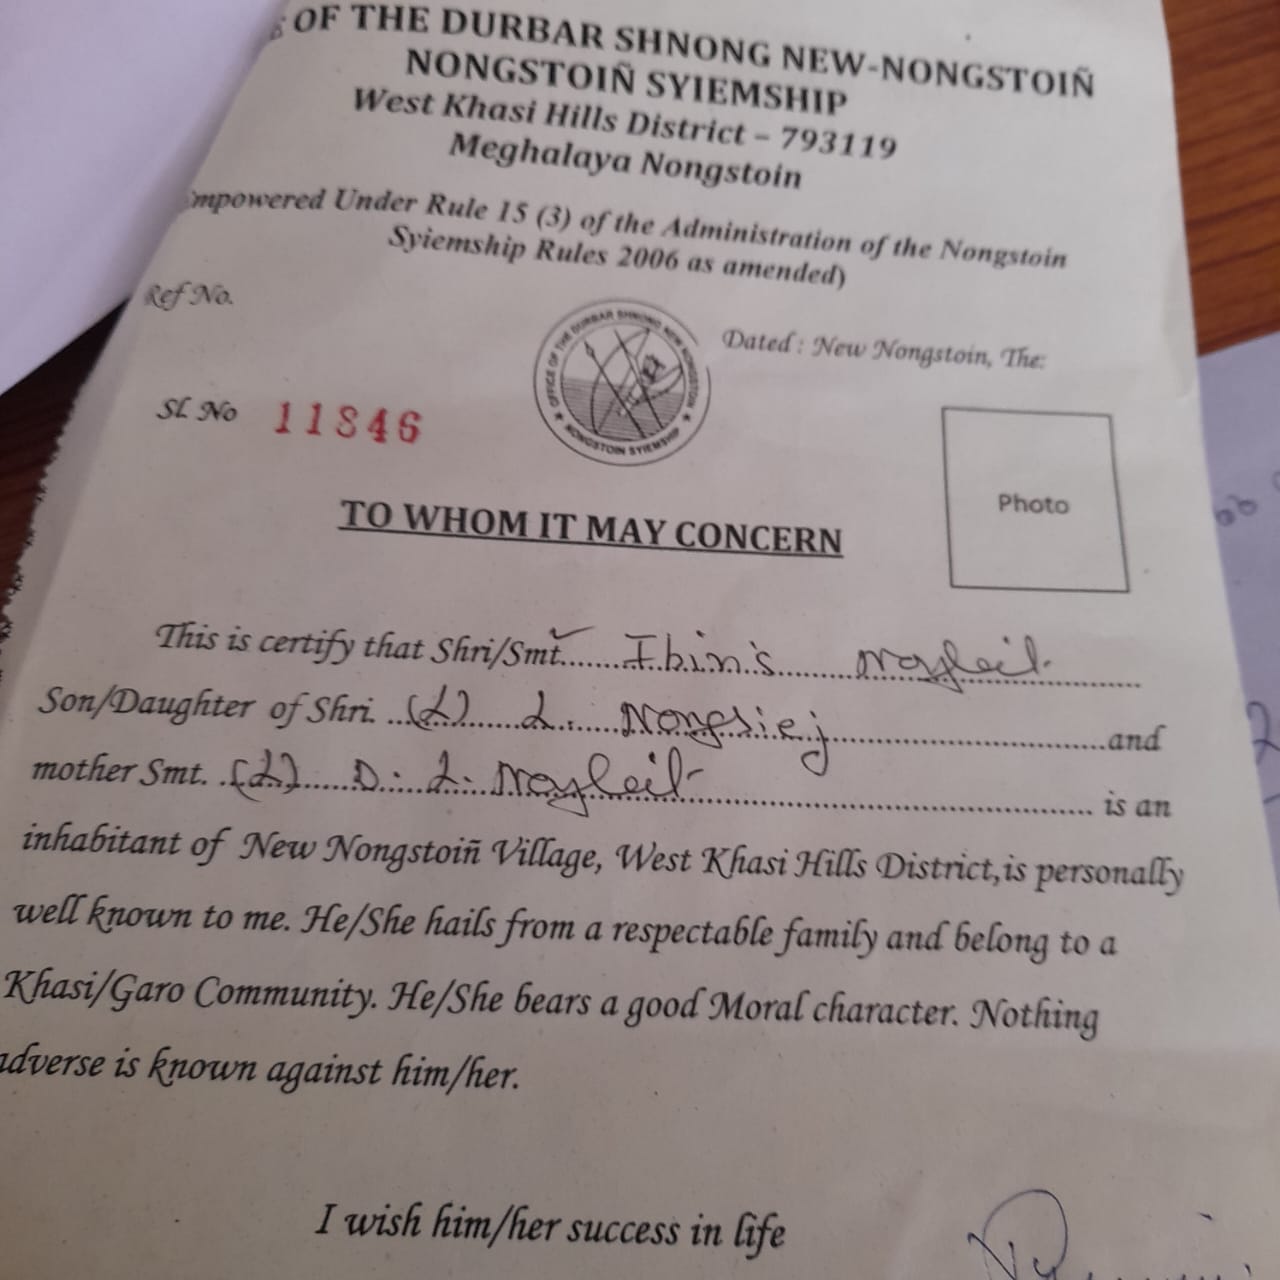 OF THE DURBAR SHNONG NEW-NONGSTOIÑ
NONGSTOIÑ SYIEMSHIP
West Khasi Hills District – 793119
Meghalaya Nongstoin
mpowered Under Rule 15 (3) of the Administration of the Nongstoin
Syiemship Rules 2006 as amended)
Ref No.
OFFICE OF THE DURBAR SHNONG NEW NONGSTOIN
NONGSTOIN SYIEMSHIP
Dated : New Nongstoin, The:
Sl. No 11846
Photo
TO WHOM IT MAY CONCERN
This is certify that Shri/Smt....... Ibin's
Son/Daughter of Shri. ...(L)...... L. ..... Nongsiej ..............................and
mother Smt. ..(L)...... D. L. .............................. is an
inhabitant of New Nongstoiñ Village, West Khasi Hills District,is personally
well known to me. He/She hails from a respectable family and belong to a
Khasi/Garo Community. He/She bears a good Moral character. Nothing
adverse is known against him/her.
I wish him/her success in life